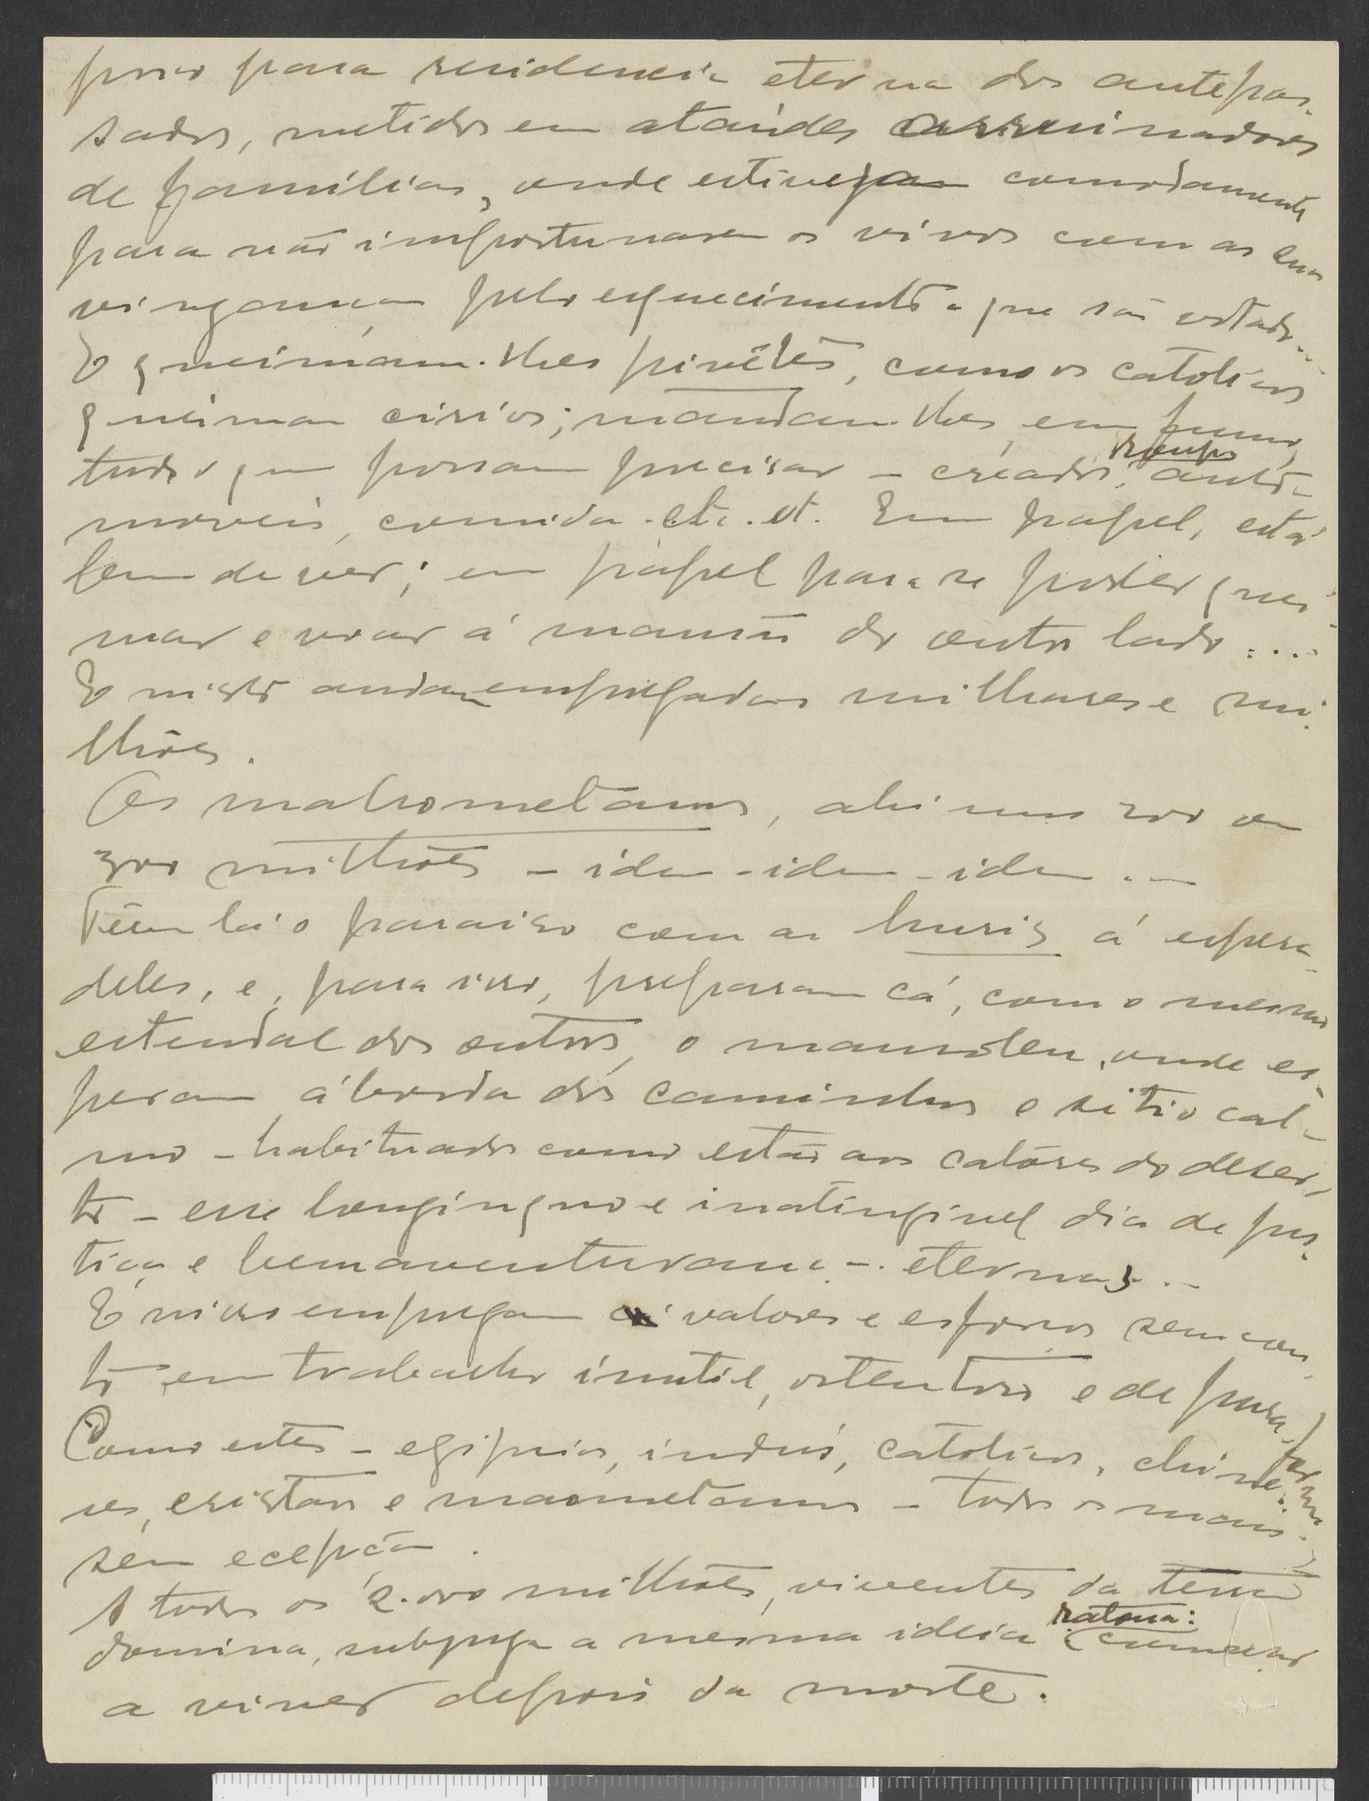 preso para residencia eterna dos antepas-
sados, metidos em ataúdes arruinadores
de familias, onde estivessem comodamente
para não importunarem os vivos com as suas
vinganças pelo esquecimento a que são votados...
E queimam-lhes pivêtes, como os catolicos
queimam cirios; mandam-lhes, em fumo,
tudo o que possam precisar - creados, roupas, auto-
moveis, comida. etc. etc. Em papel, está
bem de ver; em papel para se poder quei-
mar e voar á mansão do outro lado....
E nisto andam empregados milhares e mi-
lhões.
Os mahometanos, ahi uns 200 ou
300 milhões - idem - idem - idem . -
Têem lá o paraiso com as huris á espera
deles, e, para isso, preparam cá, com o mesmo
estendal dos outros, o mausoleu, onde es-
peram á borda dos caminhos e sitio cal-
mo - habituados como estão aos calores do deser-
to - esse longinquo e inatingivel dia de jus-
tiça e bemaventurança - eternas . -
E nisso empregam valores e esforços sem con-
to, em trabalho inutil, ostentoso e de pura forma.
Como estes - egipcios, indús, catolicos, chine-
ses, cristãos e maometanos - todos os mais.
sem ecepção.
A todos os 2.000 milhões, viventes da terra
domina, subjuga a mesma ideia ratona:
começar
a viver depois da morte.